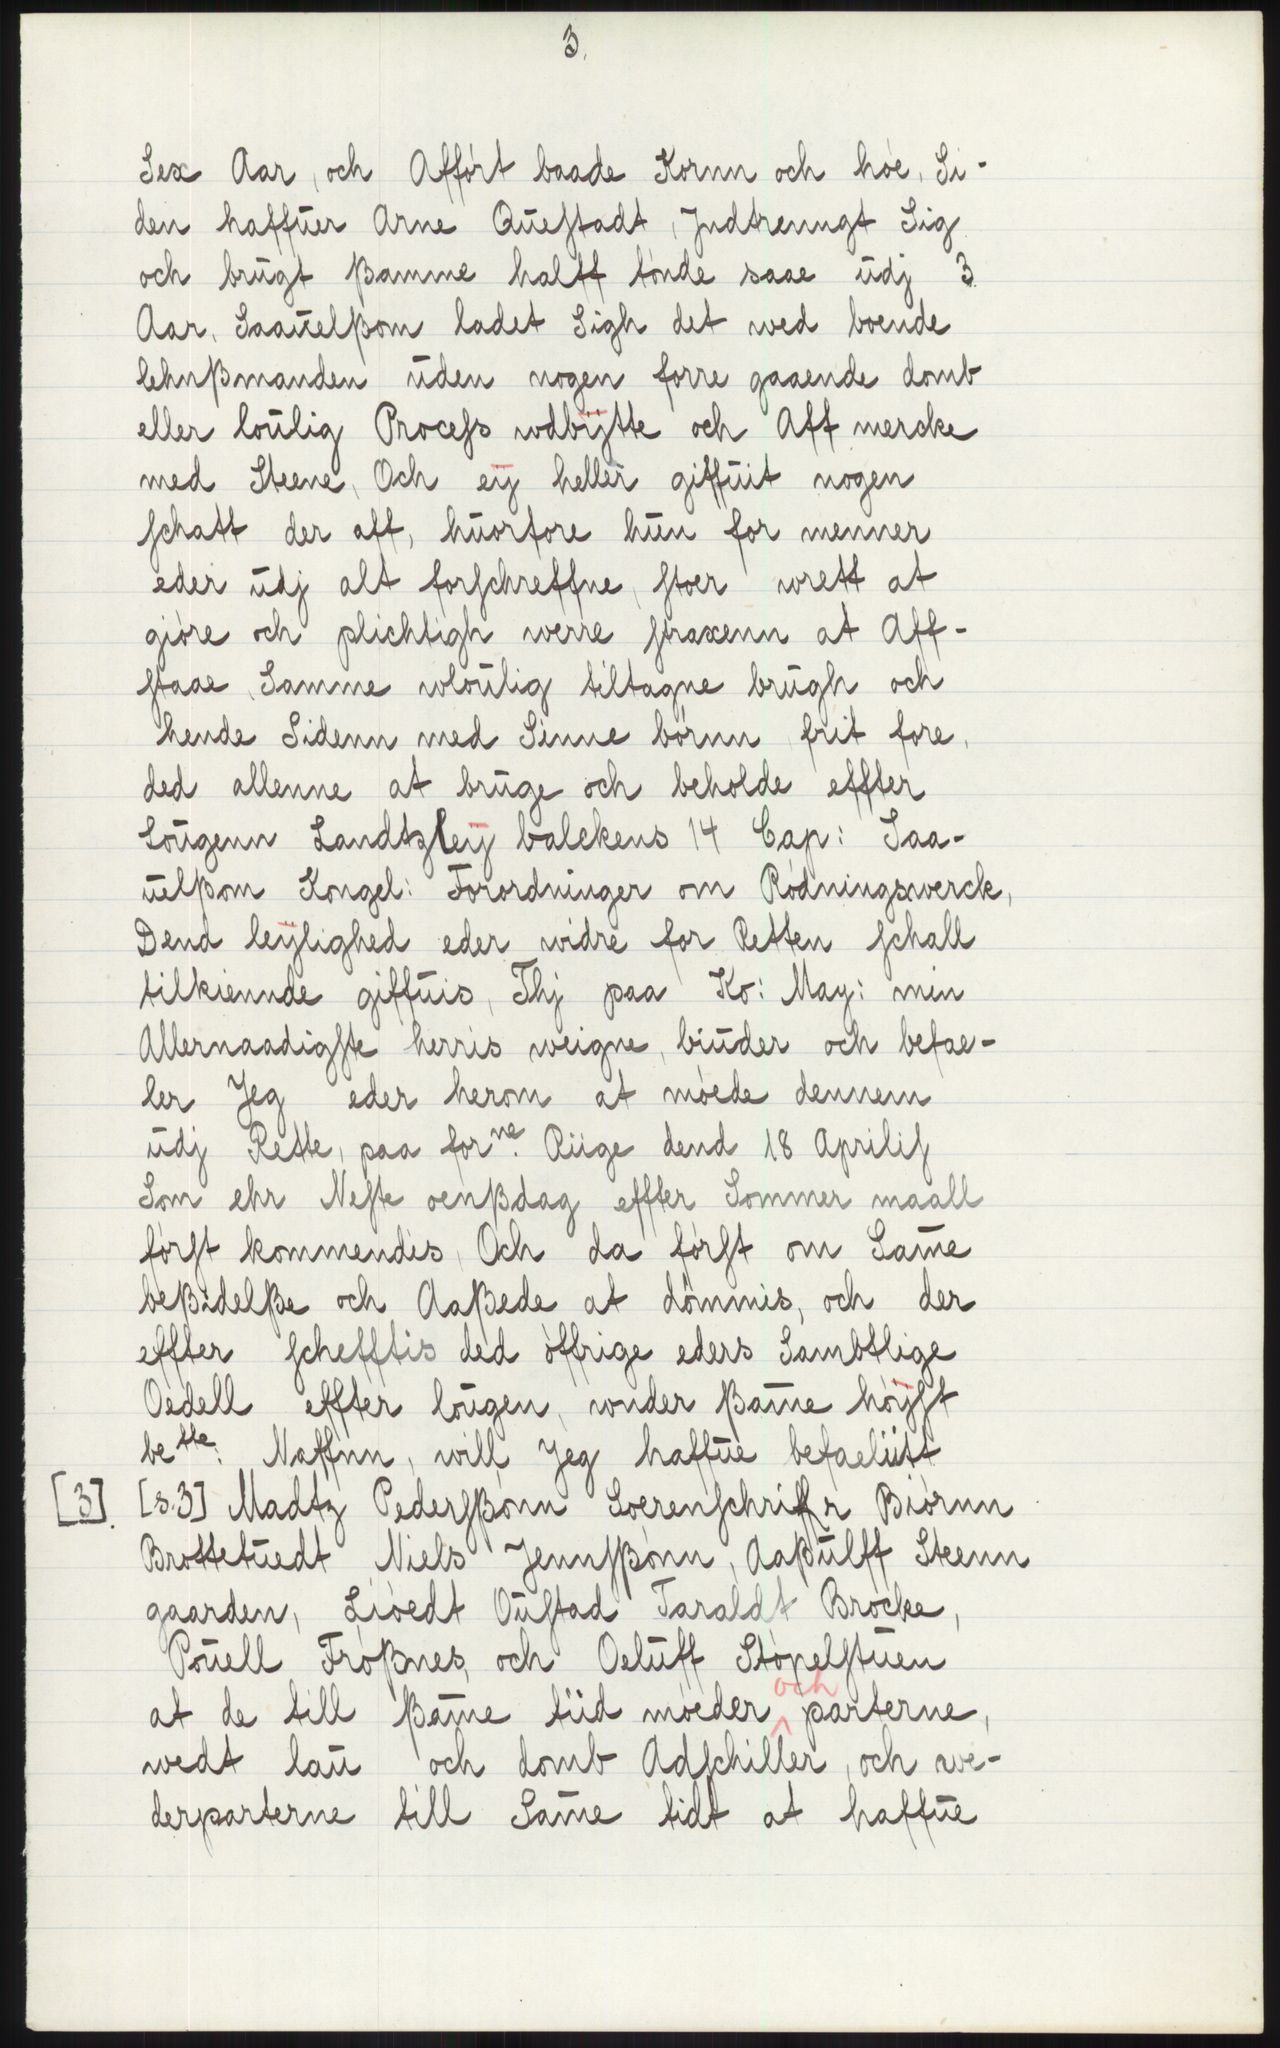 3.
Sex Aar, och Affört baade Kornn och höe, Si-
den haffuer Arne Queſtadt, Jndtrenngt Sig
och brugt ẞamme halff tönde saae udj 3
Aar, Saauelßom ladet Sigh det wed boende
lehnßmanden uden nogen forre gaaende domb
eller loulig Proceſs wdbÿtte och Aff mercke
med Steene, Och eÿ heller giffuit nogen
ſchatt der aff, huorfore hun for menner
eder udj alt forſchreffne, ſtoer wrett at
giöre och plichtigh werre ſtraxenn at Aff-
ſtaae, Samme wloulig tiltagne brugh och
hende Sidenn med Sinne börnn frit fore,
ded allenne at bruge och beholde effter
Lougenn Landtzleÿ balckens 14 Cap: Saa-
uelßom Kongel: Forordninger om Rödningswerck,
Dend leÿlighed eder widre for Retten ſchall
tilkiennde giffuis, Thj paa Ko: May: min
Allernaadigſte herris weigne, biuder och befae-
ler Jeg eder herom at möede dennem
udj Rette, paa forne. Riige dend 18 Apriliſ
Som ehr Neſte oenßdag effter Sommer maall
förſt kommendis, Och da förſt om Sam̄e
beßidelße och Aaßede at dömmis, och der
effter ſchefftis ded öffrige eders Sambtlige
Oedell effter lougen, wnder ẞam̄e höÿſt
bette: Naffnn, will Jeg haffue befaeliitt
[3]. [s.3] Madtz Pederſßönn Soerenſchriffr Biörnn
Brottetuedt Niels Jennſßönn, Aaßulff Steenn
gaarden, Siöedt Ouſtad Taraldt Bröcke,
Pouell Froßnes, och Oeluff Stöpelſtuen
at de till ẞam̄e tiid möeder och parterne,
wedt lau och domb Adſchiller, och we-
derparterne till Sam̄e tidt at haffue